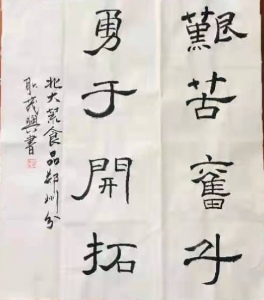 艱苦奮斗
勇于開拓
北大荒食品郑州分
耿茂興書